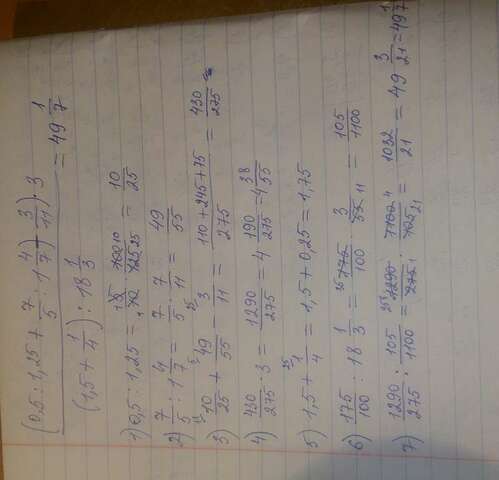 (0,5 : 1,25 + 7/5 : 1 4/7 + 3/11) · 3
(1,5 + 1/4) : 18 1/3 = 49 1/7
1) 0,5 : 1,25 = 5/10 · 100/125 = 10/25
2) 7/5 : 1 4/7 = 7/5 · 7/11 = 49/55
3) 10/25 + 49/55 - 3/11 = 110 + 245 + 75/275 = 430/275
4) 430/275 · 3 = 1290/275 = 4 190/275 = 4 38/55
5) 1,5 + 1/4 = 1,5 + 0,25 = 1,75
6) 175/100 : 18 1/3 = 175/100 · 3/55 = 105/1100
7) 1290/275 : 105/1100 = 1290/275 · 1100/105 = 1032/21 = 49 3/21 = 49 1/7